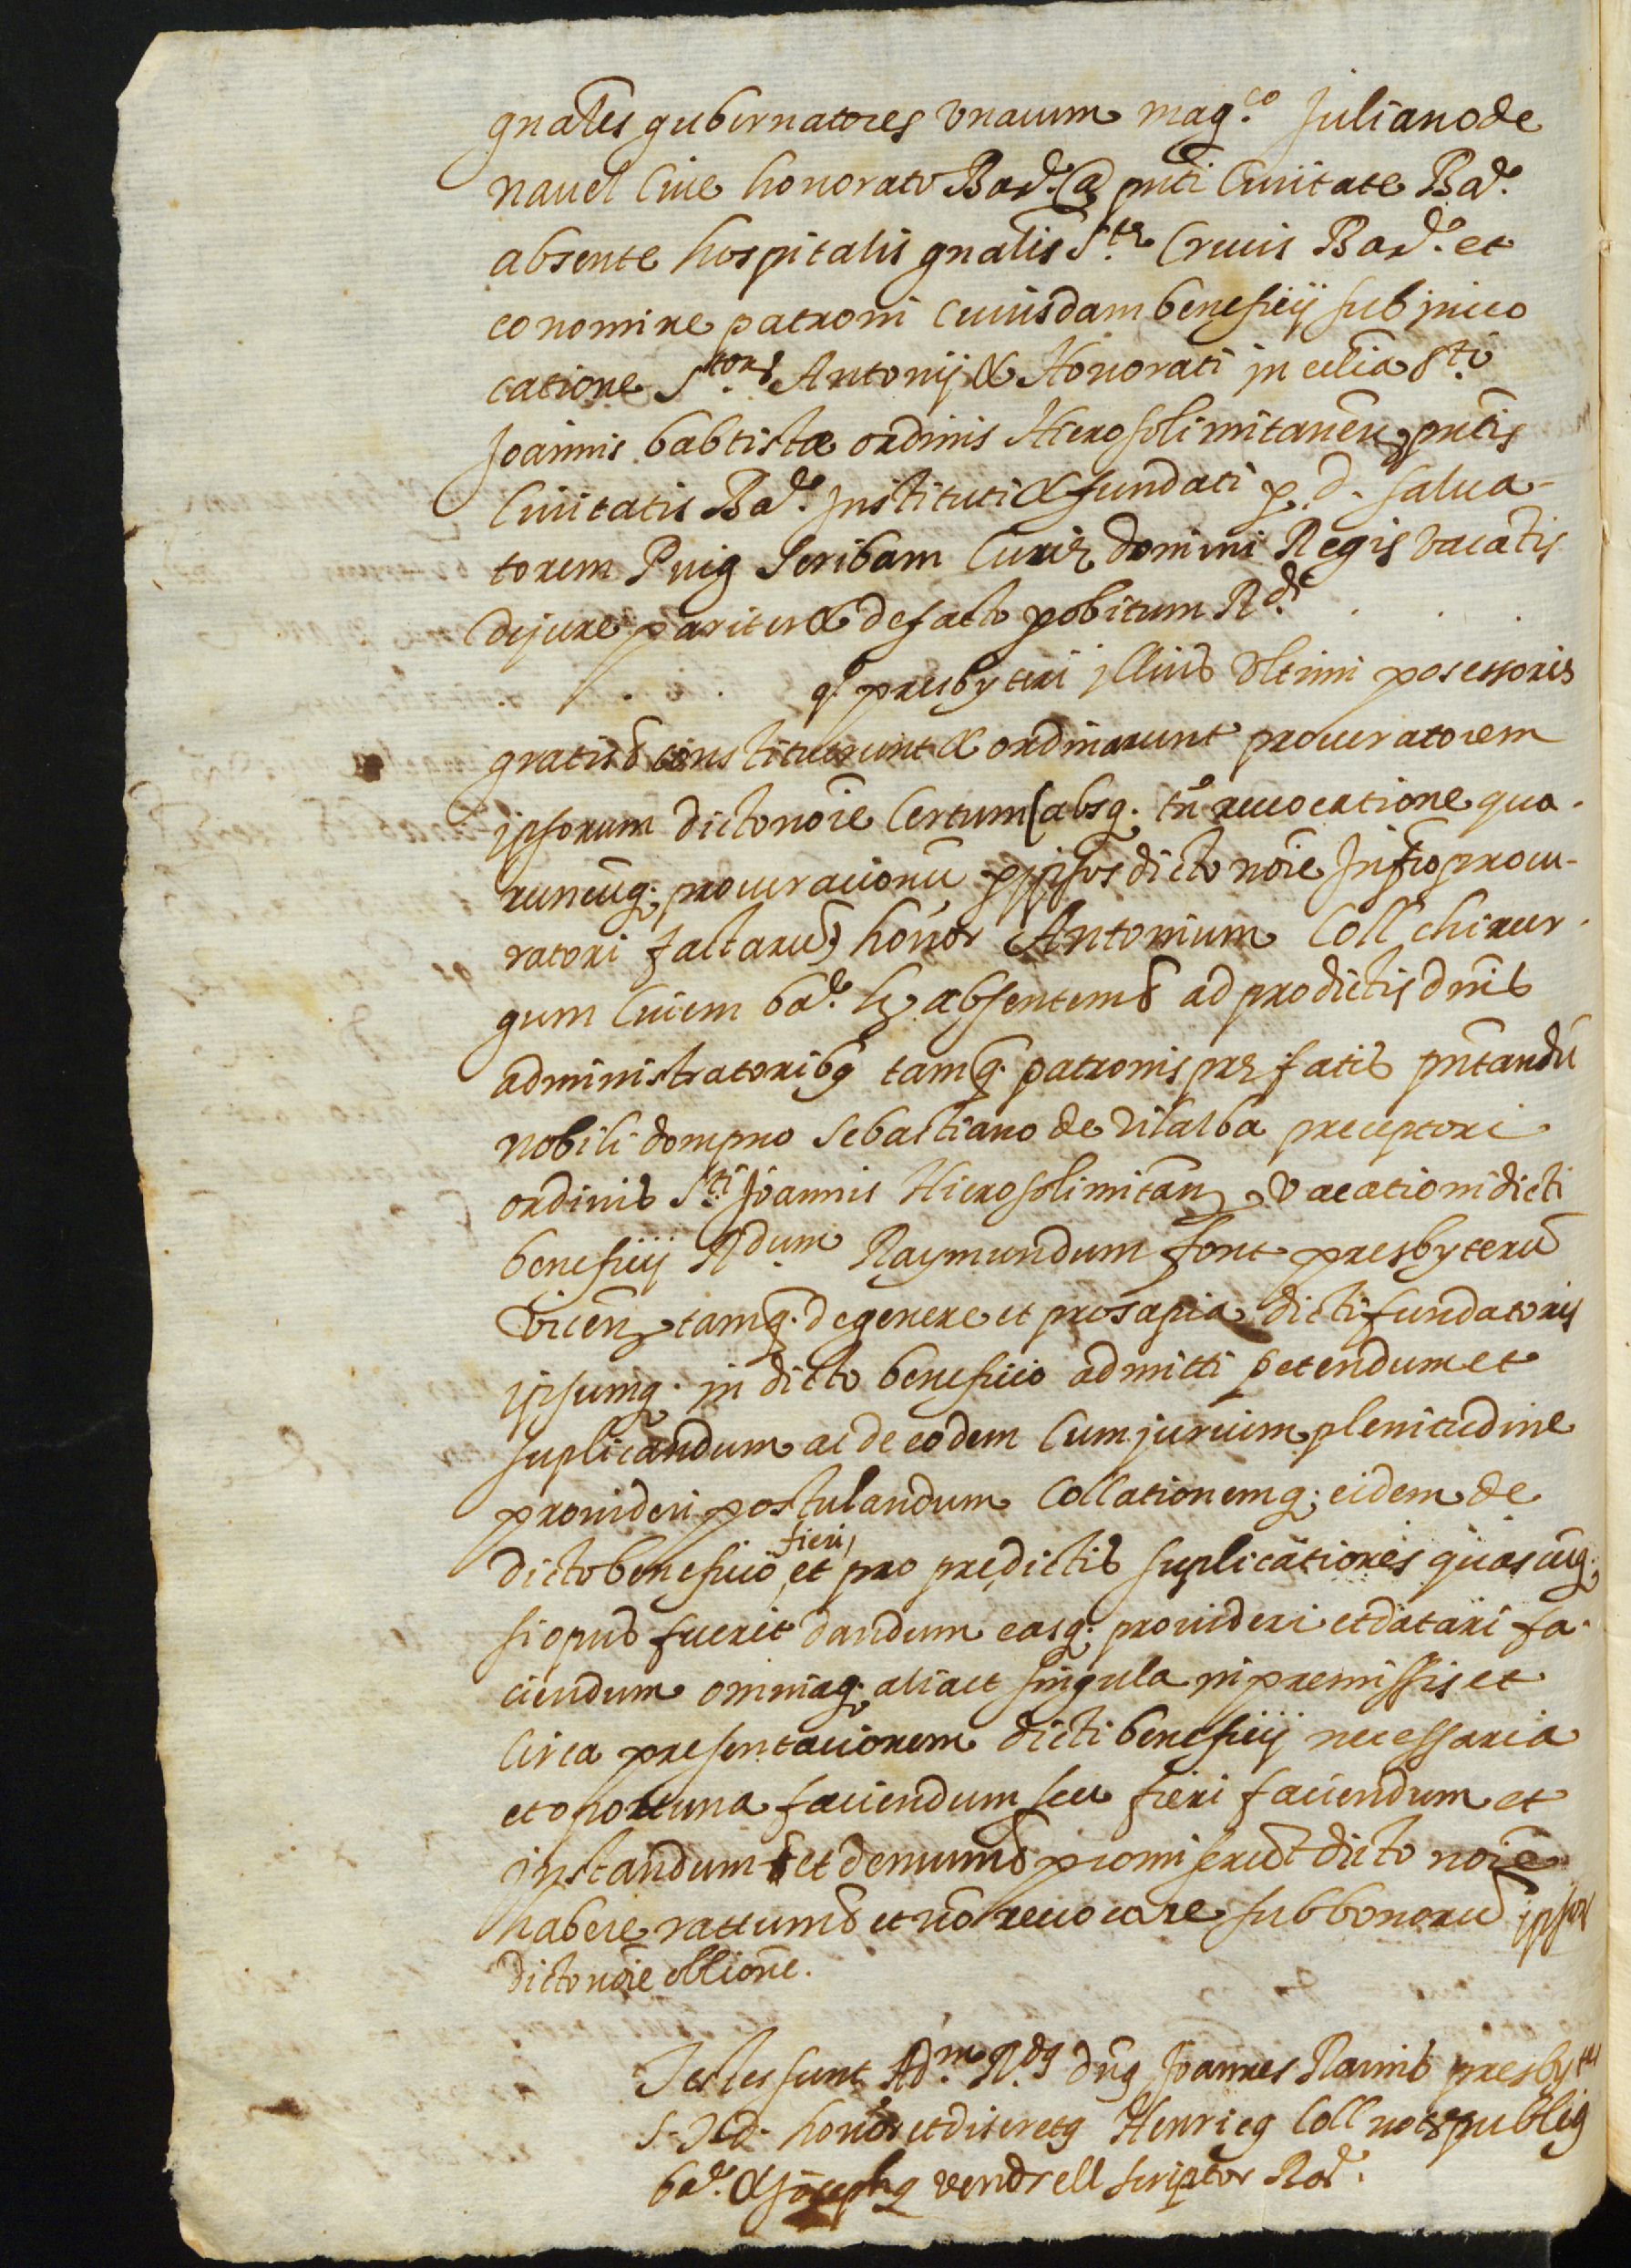 gnales gubernatores unacum mag.co Juliano de
navel Cive honorato Bar.e (a pnti Civitate Bar.e
absente hospitalis gnalis S.te Crucis Bar.e et
eo nomine patroni cuiusdam beneficij sub invo
catione S.torum Antonij & Honorati in ecclia S.ti
Joannis babtistæ ordinis Hierosolimitanen pntis
Civitatis Bar.e Instituti & fundati p d. salva-
torem Puig Scribam Curiæ domini Regis vacatis
de jure pariter & de facto p obitum R.di . . .
. . . . qº presbyteri illius ultimi posessoris
gratis & constituerunt & ordinarunt procuratorem
ipsorum dicto noie Certum (absq. tn revocatione qua-
runcuq. procuracionu p ipsos dicto noie Infro procu-
ratori factaru) honor Antonium Coll chirur-
gum Civem bar.e lz absentem & ad pro dictis dnis
administratoribq tamq. patronis præfatis pntandu
nobili dompno Sebastiano de Vilalba preceptori
ordinis S.ti Joannis Hierosolimitan vacationi dicti
beneficij R.dum Raymundum font presbyteru
Vicen tamq. de genere et prosapia dicti fundatoris
ipsumq. in dicto beneficio admitti petendum et
suplicandum ac de eodem Cum jurium plenitudine
provideri postulandum Collationemq. eidem de
dicto beneficio fieri, et pro predictis suplicationes quascuq.
si opus fuerit dandum easq. provideri et datari fa-
ciendum omniaq. alia et singula in premissis et
Circa presentacionem dicti beneficij necessaria
et oportuna faciendum seu fieri faciendum et
instandum & et demum & promiserut dicto noie
habere rattum & et no revocare sub bonoru ipsor
dicto noie obblione.
Testes sunt Ad.m R.dq dnq Joannes Ramis presbyter
S.T.d. honor et discretq Henricq Coll nots publicq
bar.e & Josephq vendrell scriptor Bar.e